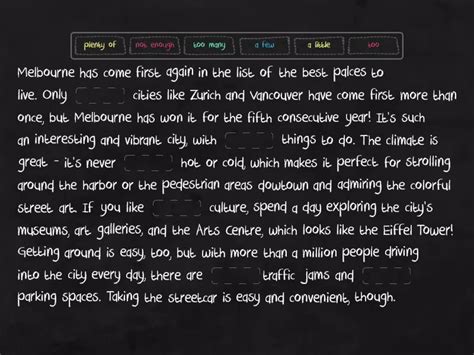 plenty of not enough too many a few a little too
Melbourne has come first again in the list of the best palces to
live. Only cities like Zurich and Vancouver have come first more than
once, but Melbourne has won it for the fifth consecutive year! It's such
an interesting and vibrant city, with things to do. The climate is
great - it's never hot or cold, which makes it perfect for strolling
around the harbor or the pedestrian areas dowtown and admiring the colorful
street art. If you like culture, spend a day exploring the city's
museums, art galleries, and the Arts Centre, which looks like the Eiffel Tower!
Getting around is easy, too, but with more than a million people driving
into the city every day, there are traffic jams and
parking spaces. Taking the streetcar is easy and convenient, though.